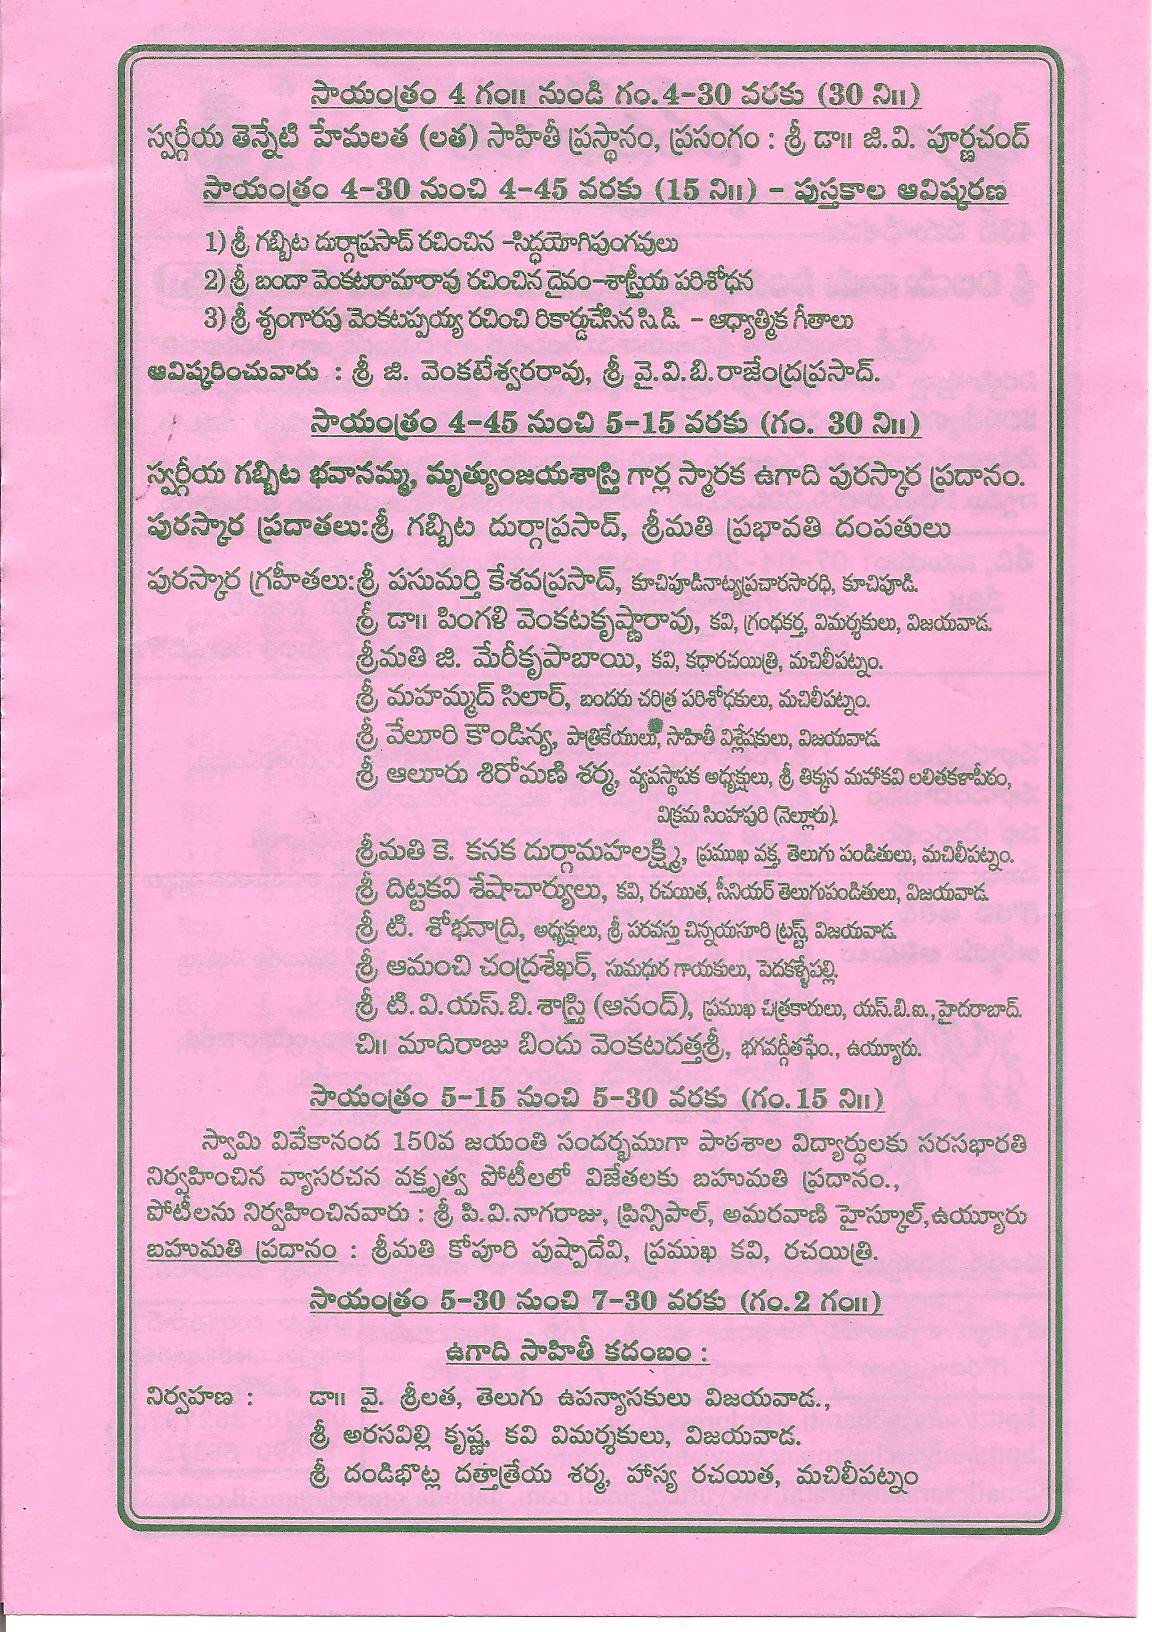 సాయంత్రం 4 గం॥ నుండి గం.4-30 వరకు (30 ని॥)
స్వర్గీయ తెన్నేటి హేమలత (లత) సాహితీ ప్రస్థానం, ప్రసంగం : శ్రీ డా॥ జి.వి. పూర్ణచంద్
సాయంత్రం 4-30 నుంచి 4-45 వరకు (15 ని॥) - పుస్తకాల ఆవిష్కరణ
1) శ్రీ గబ్బిట దుర్గాప్రసాద్ రచించిన -సిద్ధయోగిపుంగవులు
2) శ్రీ బందా వెంకటరామారావు రచించిన దైవం-శాస్త్రీయ పరిశోధన
3) శ్రీ శృంగారపు వెంకటప్పయ్య రచించి రికార్డుచేసిన సి.డి. - ఆధ్యాత్మిక గీతాలు
ఆవిష్కరించువారు : శ్రీ జి. వెంకటేశ్వరరావు, శ్రీ వై.వి.బి.రాజేంద్రప్రసాద్.
సాయంత్రం 4-45 నుంచి 5-15 వరకు (గం. 30 ని॥)
స్వర్గీయ గబ్బిట భవానమ్మ, మృత్యుంజయశాస్త్రి గార్ల స్మారక ఉగాది పురస్కార ప్రదానం.
పురస్కార ప్రదాతలు:శ్రీ గబ్బిట దుర్గాప్రసాద్, శ్రీమతి ప్రభావతి దంపతులు
పురస్కార గ్రహీతలు:శ్రీ పసుమర్తి కేశవప్రసాద్, కూచిపూడినాట్యప్రచారసారధి, కూచిపూడి.
శ్రీ డా॥ పింగళి వెంకటకృష్ణారావు, కవి, గ్రంధకర్త, విమర్శకులు, విజయవాడ.
శ్రీమతి జి. మేరీకృపాబాయి, కవి, కధారచయిత్రి, మచిలీపట్నం.
శ్రీ మహమ్మద్ సిలార్, బందరు చరిత్ర పరిశోధకులు, మచిలీపట్నం.
శ్రీ వేలూరి కౌండిన్య, పాత్రికేయులు, సాహితీ విశ్లేషకులు, విజయవాడ.
శ్రీ ఆలూరు శిరోమణి శర్మ, వ్యవస్థాపక అధ్యక్షులు, శ్రీ తిక్కన మహాకవి లలితకళాపీఠం,
విక్రమ సింహపురి (నెల్లూరు).
శ్రీమతి కె. కనక దుర్గామహలక్ష్మి, ప్రముఖ వక్త, తెలుగు పండితులు, మచిలీపట్నం.
శ్రీ దిట్టకవి శేషాచార్యులు, కవి, రచయిత, సీనియర్ తెలుగుపండితులు, విజయవాడ.
శ్రీ టి. శోభనాద్రి, అధ్యక్షులు, శ్రీ పరవస్తు చిన్నయసూరి ట్రస్ట్, విజయవాడ.
శ్రీ ఆమంచి చంద్రశేఖర్, సుమధుర గాయకులు, పెదకళ్ళేపల్లి.
శ్రీ టి.వి.యస్.బి.శాస్త్రి (ఆనంద్), ప్రముఖ చిత్రకారులు, యస్.బి.ఐ.,హైదరాబాద్.
చి॥ మాదిరాజు బిందు వెంకటదత్తశ్రీ, భగవద్గీతఫేం., ఉయ్యూరు.
సాయంత్రం 5-15 నుంచి 5-30 వరకు (గం.15 ని॥)
స్వామి వివేకానంద 150వ జయంతి సందర్భముగా పాఠశాల విద్యార్ధులకు సరసభారతి
నిర్వహించిన వ్యాసరచన వక్తృత్వ పోటీలలో విజేతలకు బహుమతి ప్రదానం.,
పోటీలను నిర్వహించినవారు : శ్రీ పి.వి.నాగరాజు, ప్రిన్సిపాల్, అమరవాణి హైస్కూల్,ఉయ్యూరు
బహుమతి ప్రదానం : శ్రీమతి కోపూరి పుష్పాదేవి, ప్రముఖ కవి, రచయిత్రి.
సాయంత్రం 5-30 నుంచి 7-30 వరకు (గం.2 గం॥)
ఉగాది సాహితీ కదంబం :
నిర్వహణ : డా॥ వై. శ్రీలత, తెలుగు ఉపన్యాసకులు విజయవాడ.,
శ్రీ అరసవిల్లి కృష్ణ, కవి విమర్శకులు, విజయవాడ.
శ్రీ దండిభొట్ల దత్తాత్రేయ శర్మ, హాస్య రచయిత, మచిలీపట్నం